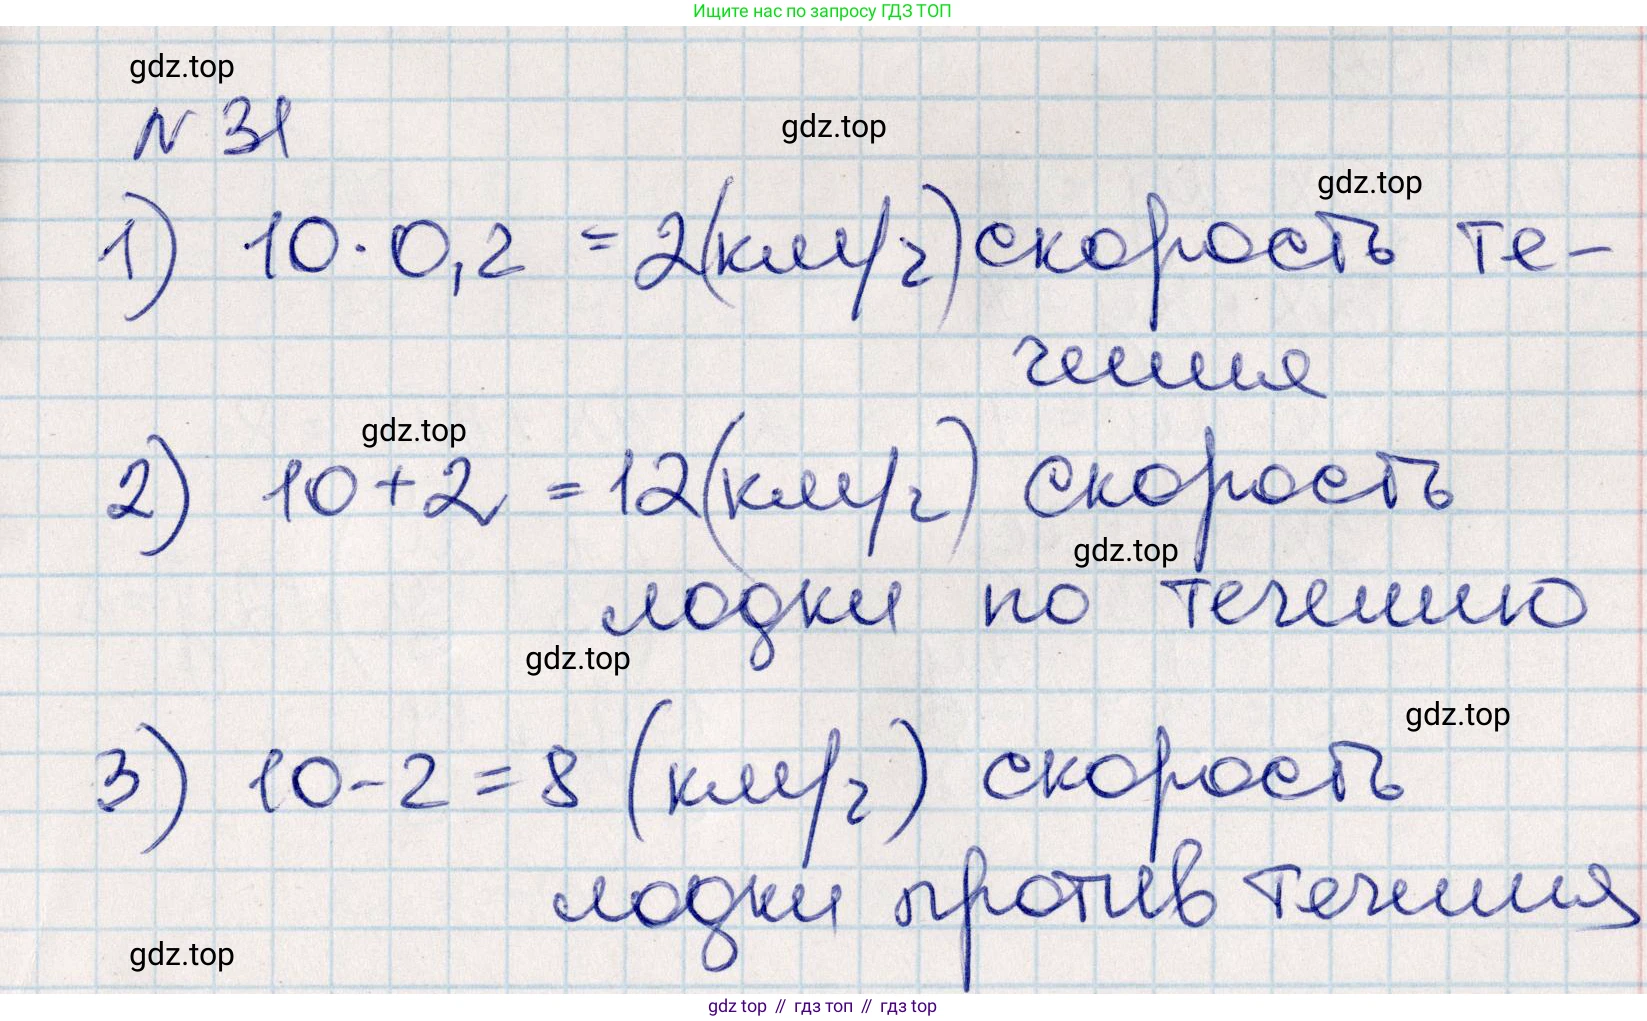 Ищите нас по запросу ГДЗ ТОП
gdz.top
N 31
gdz.top
gdz.top
1) 10 · 0,2 = 2(км/ч) скорость те-
чения
gdz.top
2) 10 + 2 = 12(км/ч) скорость
gdz.top
лодки по течению
gdz.top
gdz.top
3) 10 - 2 = 8 (км/ч) скорость
лодки против течения
gdz.top
gdz top // гдз топ // gdz top